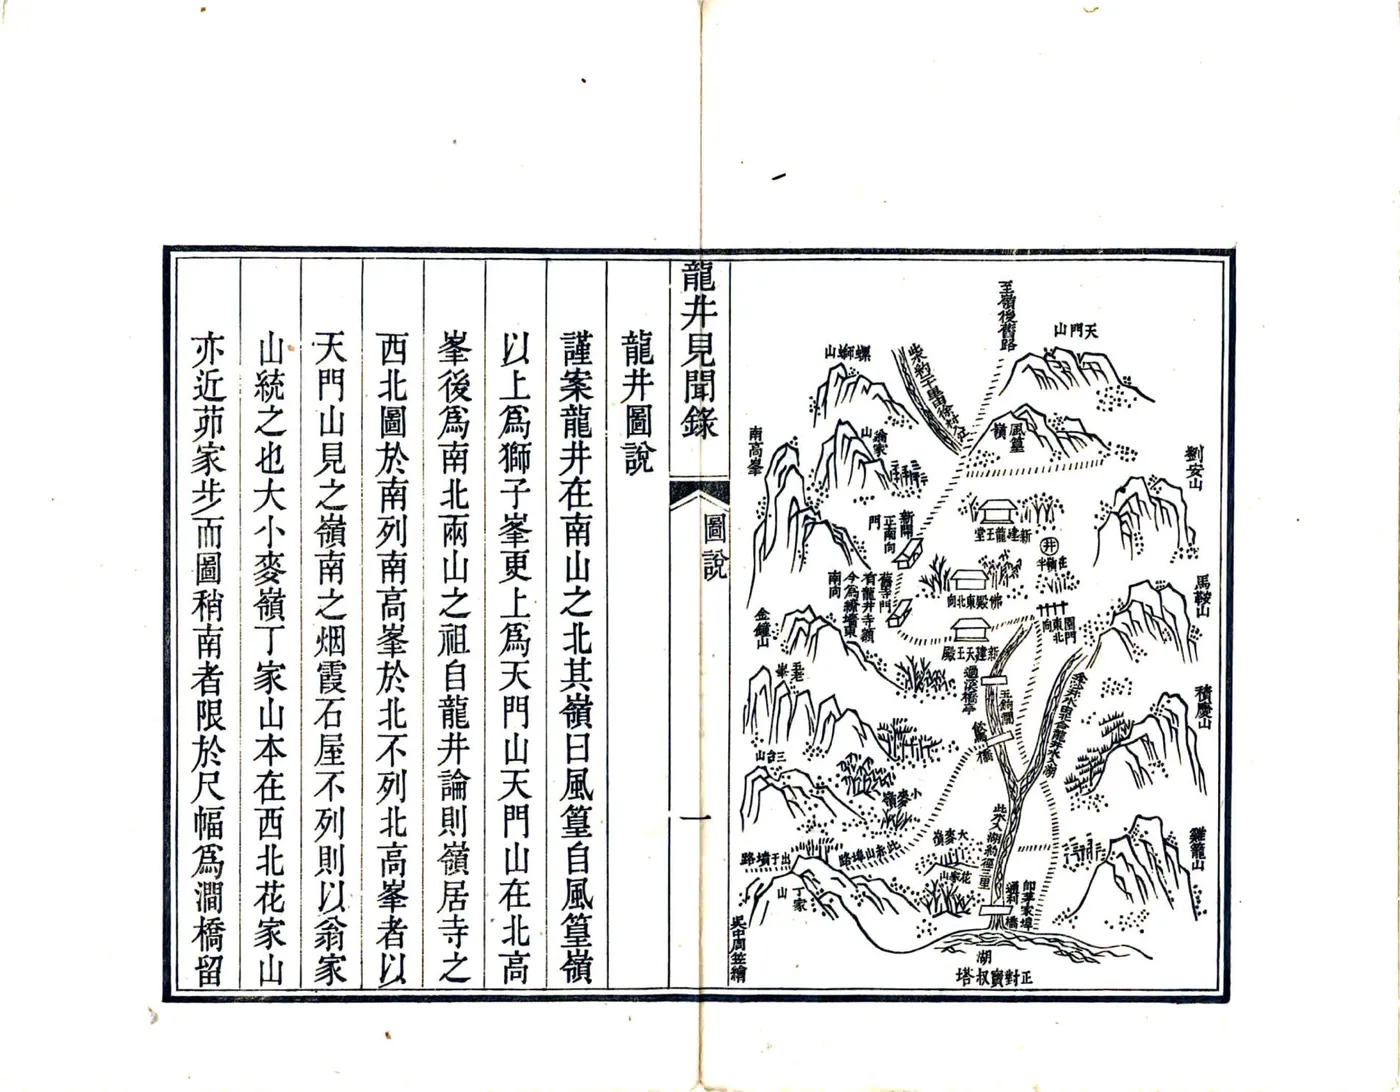 至嶺後舊路
天門山
螺螄山
風篁嶺
翁家山
南高峯
劉安山
新開門正南向
新建龍王堂
井
舊寺門
有龍井寺額
今爲繚墻東
南向
佛殿東北向
園門東北向
馬鞍山
金鐘山
新建天王殿
過溪橋亭
積慶山
三台山
小麥嶺
此水入湖約徑三里
大麥嶺
花家山
雞籠山
丁家山
通利橋
即茅家埠
湖
正對寶叔塔
吳中周笠繪
龍井見聞錄
圖說
一
龍井圖說
謹案龍井在南山之北其嶺曰風篁自風篁嶺
以上爲獅子峯更上爲天門山天門山在北高
峯後爲南北兩山之祖自龍井論則嶺居寺之
西北圖於南列南高峯於北不列北高峯者以
天門山見之嶺南之烟霞石屋不列則以翁家
山統之也大小麥嶺丁家山本在西北花家山
亦近茆家步而圖稍南者限於尺幅爲澗橋留